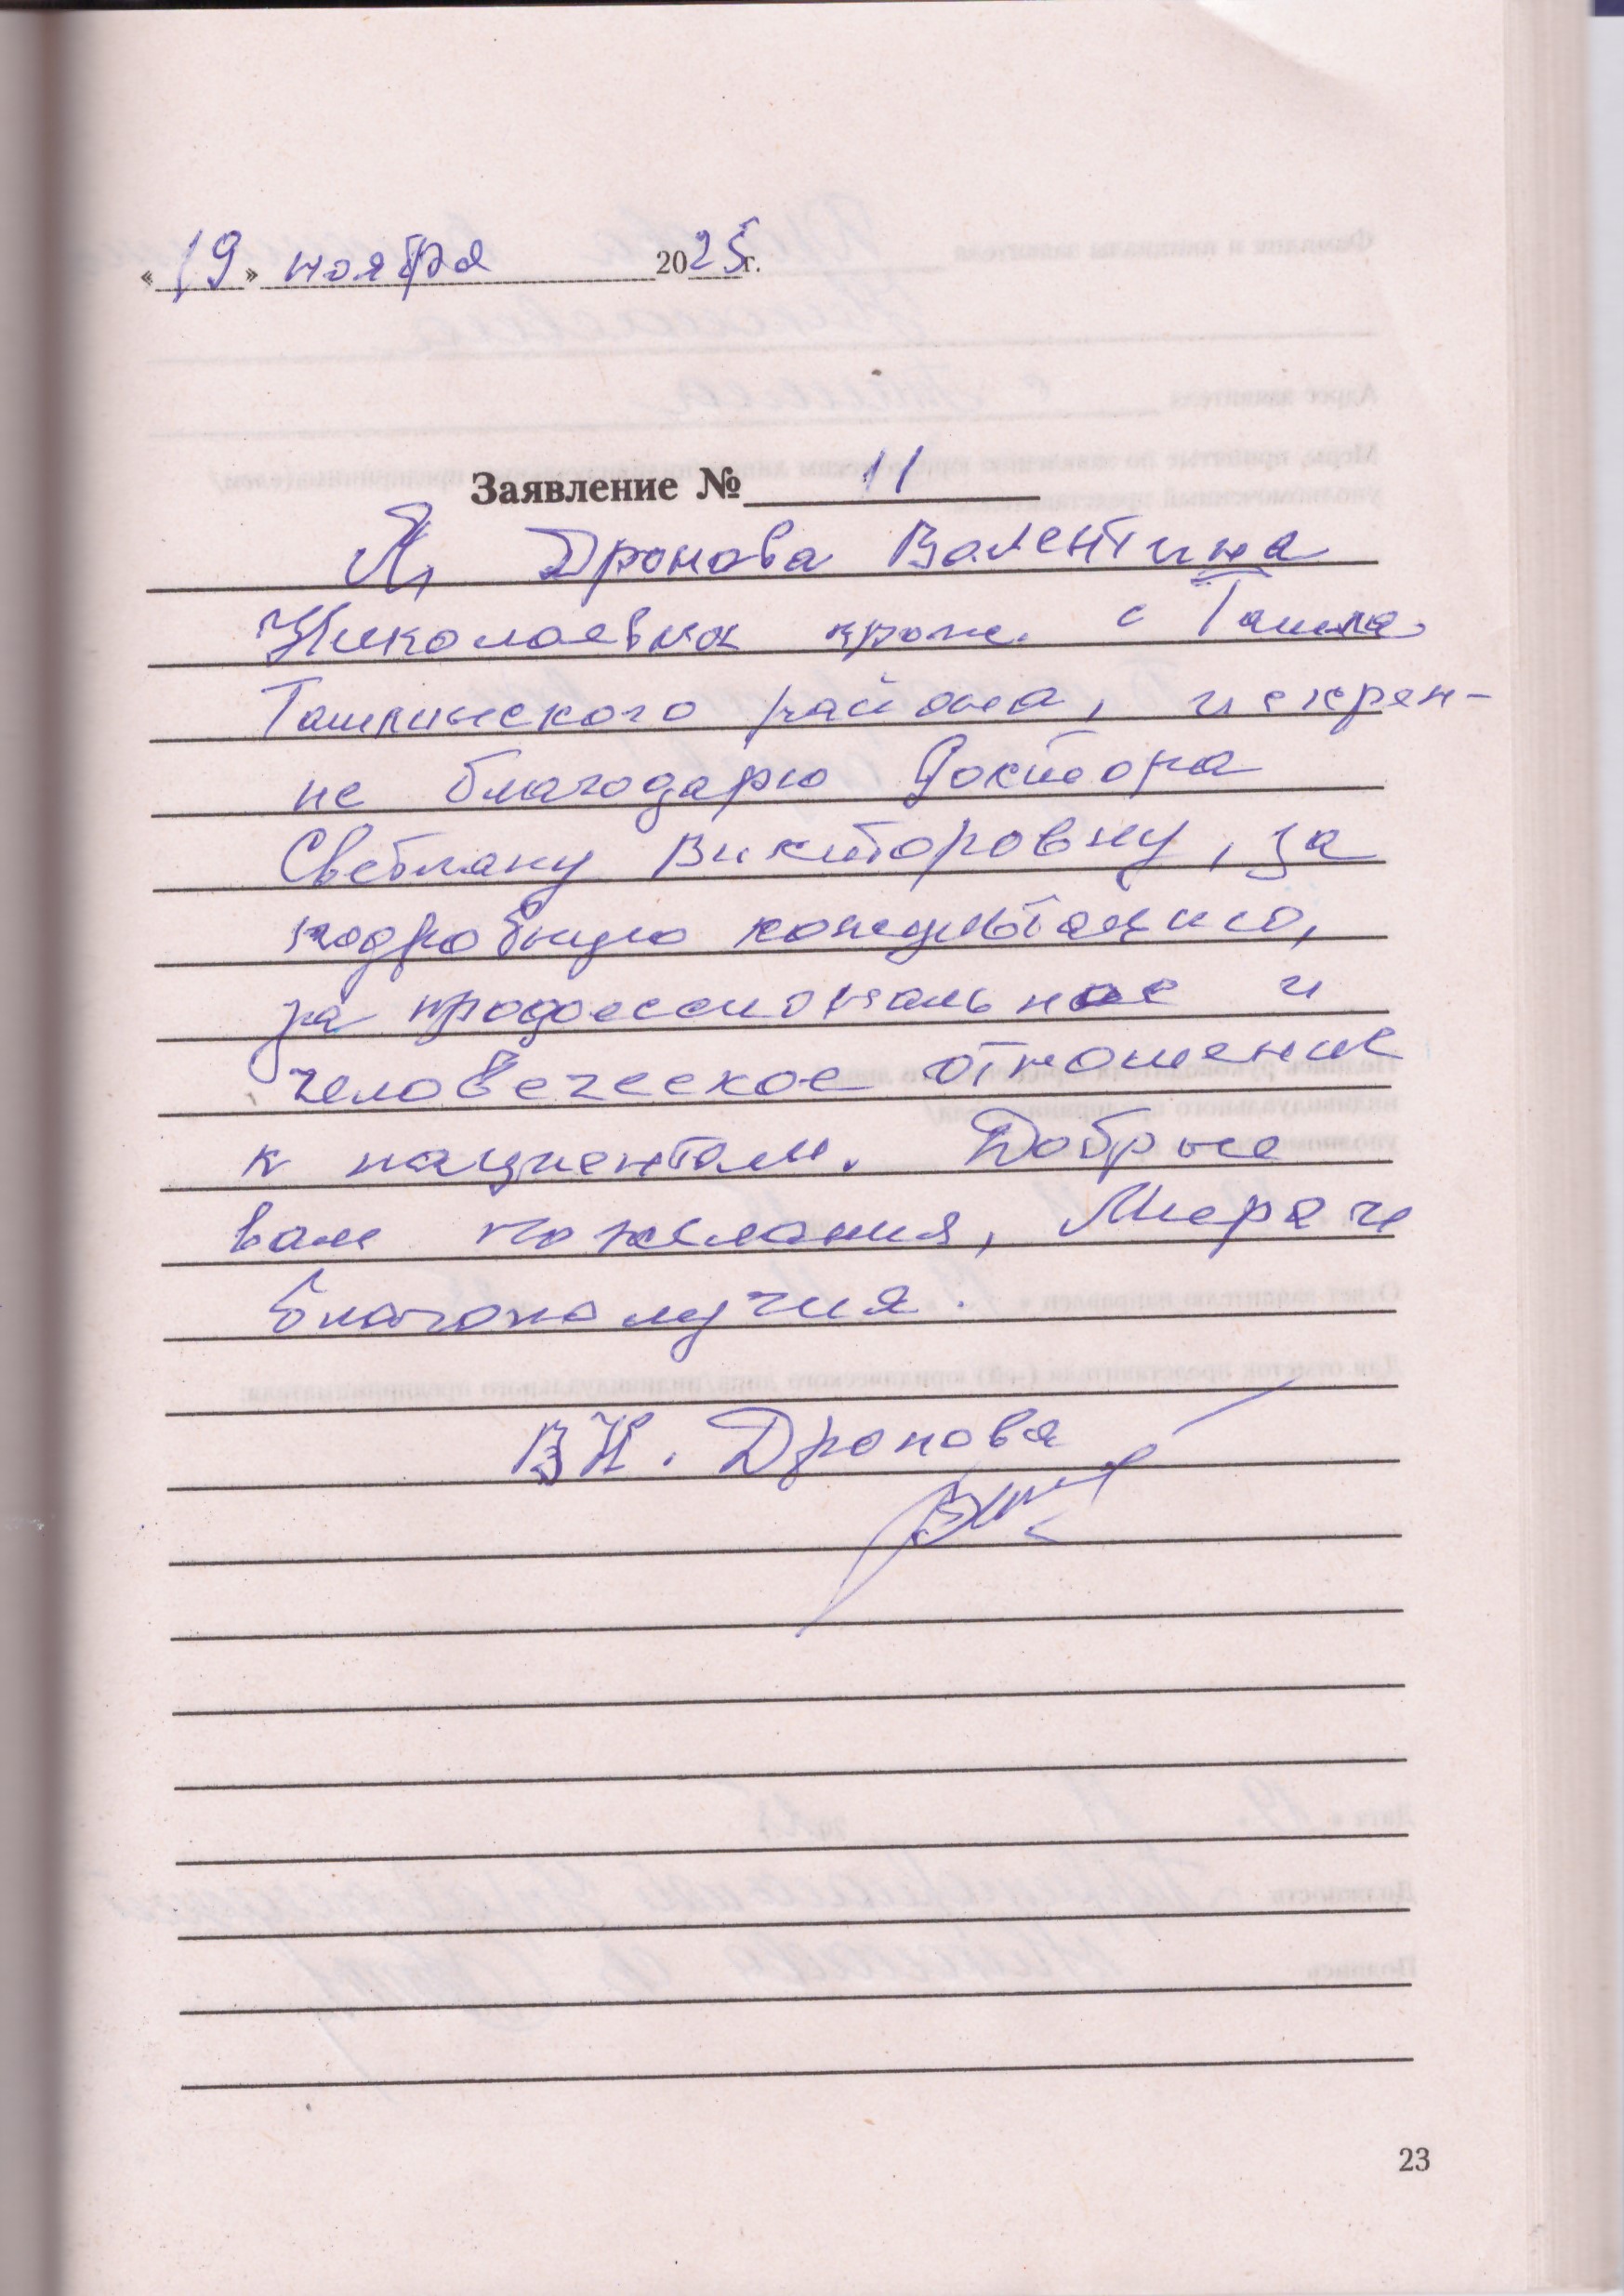 «19» ноября 2025г.
Заявление № 11
Я, Дронова Валентина
Николаевна прож. с Ташла
Ташлинского района, искрен-
не благодарю Доктора
Светлану Викторовну, за
подробную консультацию,
за профессиональное и
человеческое отношение
к пациентам. Добрые
вам пожелания, Мира и
благополучия.
ВН. Дронова
23